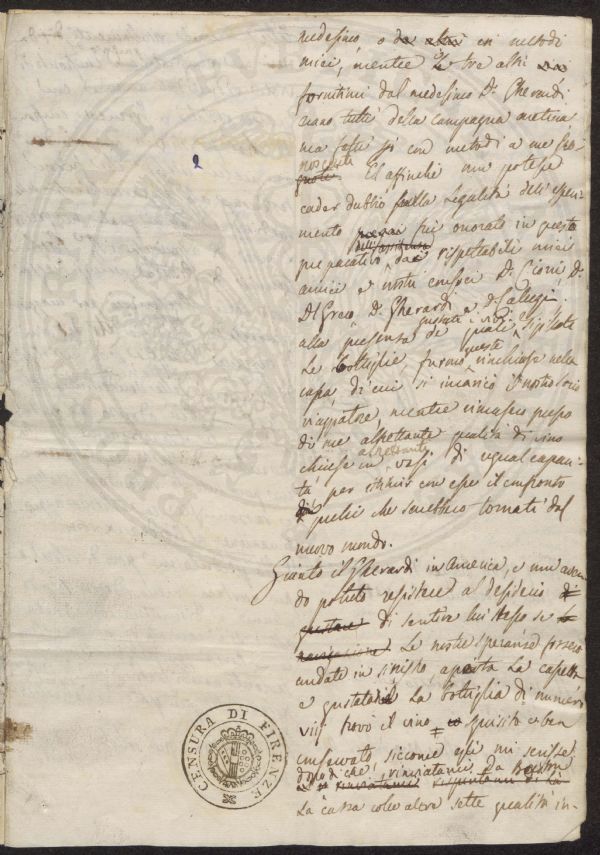 medesimo o da altri en metodi
miei, mentre le tre altri
fornitimi dal medesimo Dr. Gherardi
erano tutti della campagna aretina
ma fatti si con metodi a me
noscente Ed affinché non potesse
cader dubbio sulla Legalità dell'esperi-
mento fui onorato in questo
preparativo dai rispettabili miei
amici e nostri consoci Dr. Cioni, Dr.
Del Greco Dr. Gherardi e
alla presenza de' quali gustati i vini e sigillate
Le bottiglie, furono queste rinchiuse nella
capsa di cui si incaricò il nostro socio
viaggiatore, mentre rimasero presso
di me altrettante qualità di vino
chiuse in altrettanti vasi di ugual capaci-
tà per istituir con esse il confronto
di quelli che sarebbero tornati dal
nuovo mondo.
Giunto il Gherardi in America, e non aven-
do potuto resistere al desiderio di
gustare di sentire lui stesso se le
Le nostre speranze fossero
andate in sinistro aperta La capsetta
e gustata La bottiglia di numero
VIII trovò il vino squisito e ben
conservato, siccome egli mi scrisse
dopo di che rinviatami da Boston
La cassa colle altre sette qualità in-
CENSURA DI FIRENZE